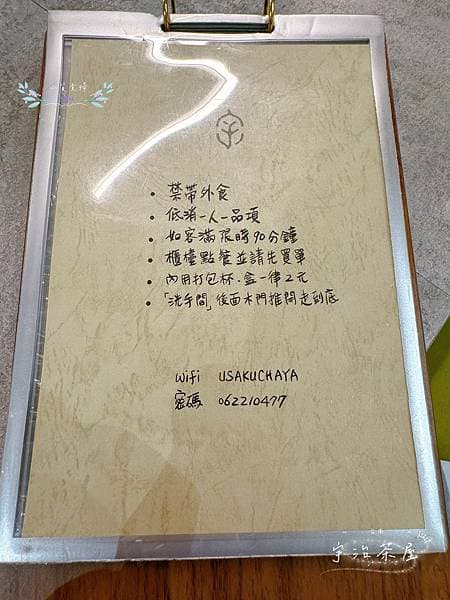 禁帶外食
低消一人一品項
如客滿限時90分鐘
櫃檯點餐並請先買單
內用打包杯.盒一律2元
「洗手間」後面木門推開走到底
wifi USAKUCHAYA
密碼 062210477
宇治茶屋